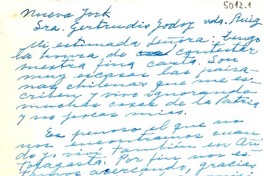 5012.1
Nueva York
Sra. Gertrudis Godoy vda. Puig
Mi estimada Señora: tengo
la honra de contestar
vuestra fina carta. Son
muy escasas las paisa-
nas chilenas que nos es-
criben y vivo ignorando
muchas cosas de la Patria
y no pocas mías.
Es penoso el que no
nos encontramos cuan-
do yo viví también en An-
tofagasta. Por fin nos es-
tamos acercando, gracias